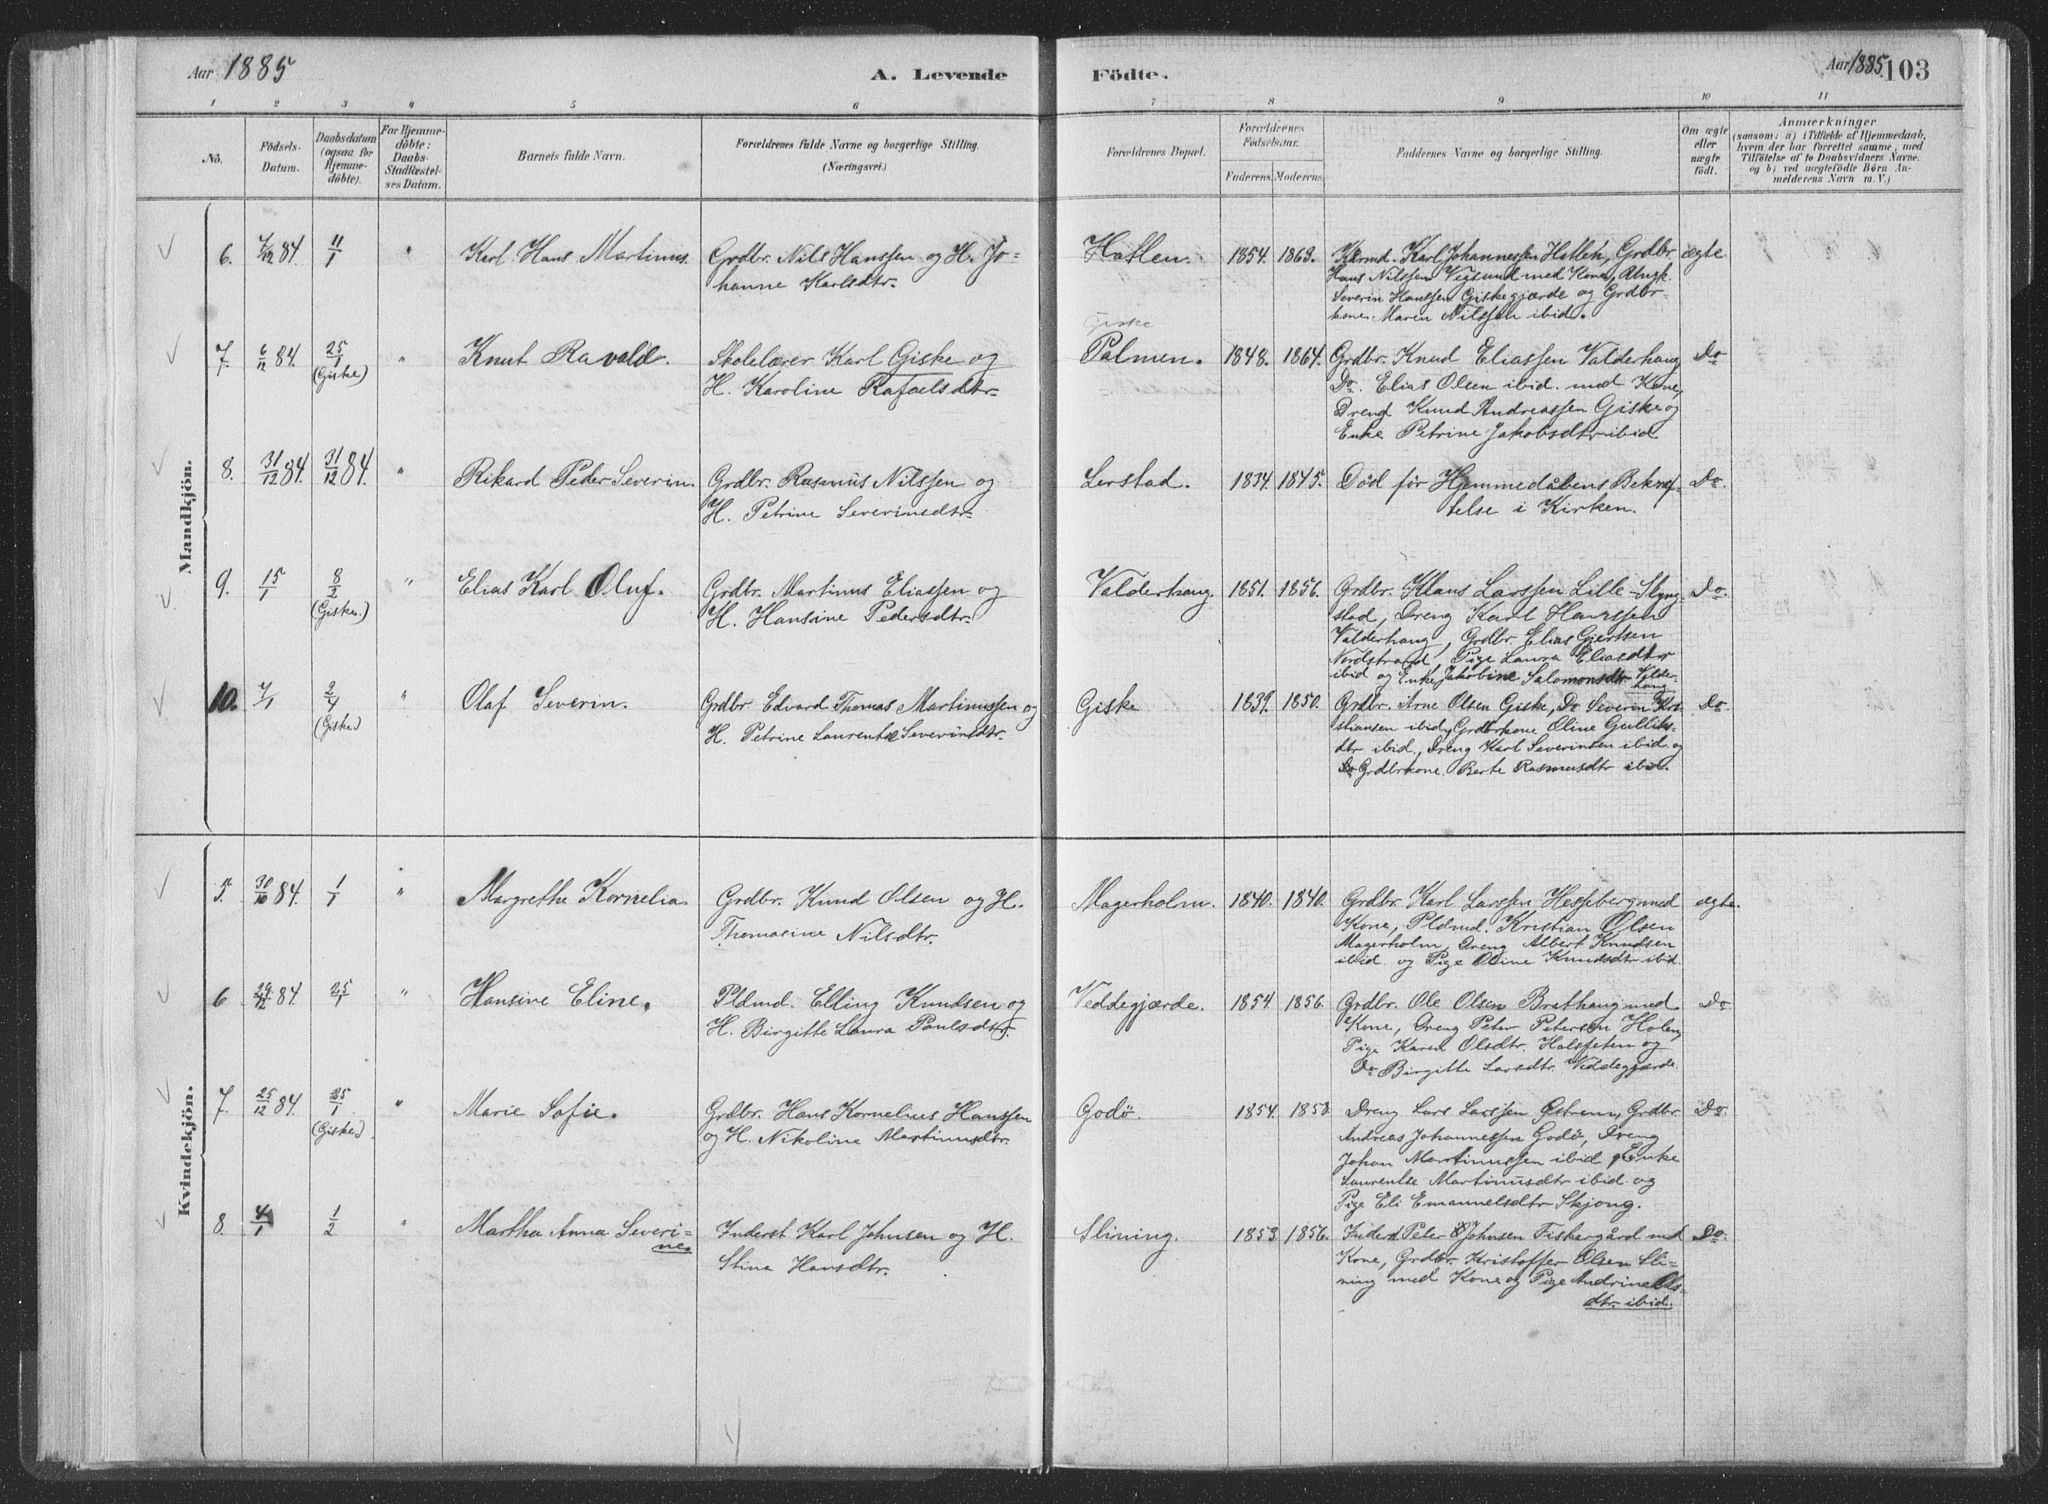 Aar 1885
A. Levende
Födte.
Aar 1885 103
1 2 3 4 5 6 7 8 9 10 11
No.
Födsels-
Datum.
Daabsdatum
(ogsaa for
Hjemme-
döbte).
For Hjemme-
döbte:
Daabs-
Stadfæstel-
ses Datum.
Barnets fulde Navn.
Forældrenes fulde Navne og borgerlige Stilling.
(Næringsvei.)
Forældrenes Bopæl.
Forældrenes
Födselsaar.
Faderens. Moderens.
Faddernes Navne og borgerlige Stilling.
Om ægte
eller
uægte
födt.
Anmærkninger
(saasom: a) i Tilfælde af Hjemmedaab,
hvem der har forrettet samme, med
Tilföielse af to Daabsvidners Navne.
og b) ved uægtefödte Börn An-
melderens Navn m. V.)
Mandkjön.
6. 7/12 84. 11/1 " Karl Hans Martinus. Grdbr. Nils Hanssen og H. Jo-
hanne Karlsdtr.
Hatlen. 1854. 1863. Kårmd. Karl Johannessen Hatleh, Grdbr. ægte
Hans Nilssen Vigsund med Kone, Ungk.
Severin Hanssen Giskegjærde og Grdbr-
kone Maren Nilssen ibid.
7. 6/12 84. 25/1 " Knut Ravald. Skolelærer Karl Giske og
(Giske) H. Karoline Rafaelsdtr.
Giske
Palmen. 1848. 1864. Grdbr. Knud Eliassen Valderhaug Do
Do. Elias Olsen ibid. med Kone,
Dreng Knud Andreassen Giske og
Enke Petrine Jakobsdtr ibid
8. 31/12 84. 31/12 84. " Rikard Peder Severin. Grdbr. Rasmus Nilssen og
H. Petrine Severinsdtr.
Lerstad. 1834. 1845. Död för Hjemmedåbens Bekræf- Do.
telse i Kirken.
9. 15/1 8/2 " Elias Karl Oluf. Grdbr. Martinus Eliassen og
(Giske.) H. Hansine Pedersdtr.
Valderhaug. 1851. 1856. Grdbr. Klaus Larssen Lille-Slyng- Do.
stad, Dreng Karl Hanssen
Valderhaug, Grdbr. Elias Gjertsen
Nordstrand, Pige Laura Eliasdtr
ibid og Enke Jakobine Salomonsdtr. Valder-
haug
10. 7/1 2/4 " Olaf Severin. Grdbr. Edvard Thomas Martinussen og
(Giske) H. Petrine Laurentse Severinsdtr.
Giske 1839. 1850. Grdbr. Arne Olsen Giske, Do Severin Kri- Do.
stiansen ibid, Grdbrkone Oline Gulliks-
dtr ibid., Dreng Karl Severinsen ibid. og
Do Grdbrkone Berte Rasmusdtr ibid.
Kvindekjön.
5. 30/10 84. 1/1 " Margrethe Kornelia. Grdbr. Knud Olsen og H.
Thomasine Nilsdtr.
Magerholm. 1840. 1840. Grdbr. Karl Larssen Hesseberg med ægte.
Kone, Pldmd. Kristian Olsen
Magerholm, Dreng Albert Knudsen
ibid. og Pige Oline Knudsdtr ibid.
6 29/12 84. 25/1 " Hansine Eline. Pldmd. Elling Knudsen og
H. Birgitte Laura Paulsdtr.
Veddegjærde. 1854 1856. Grdbr. Ole Olsen Brathaug med Do
Kone, Dreng Peter Petersen Holen,
Pige Karen Olsdtr. Halsfeten og
Do Birgitte Larsdtr. Veddegjærde
7. 25/12 84. 25/1 " Marie Sofie. Grdbr. Hans Kornelius Hanssen
(Giske) og H. Nikoline Martinusdtr.
Godö. 1854. 1858. Dreng Lars Larssen Östrem, Grdbr. Do
Andreas Johannessen Godö, Dreng
Johan Martinussen ibid, Enke
Laurentse Martinusdtr ibid og
Pige Eli Emanuelsdtr Skjong.
8. 4/1 1/2 " Martha Anna Severi-
ne. Inderst Karl Johnsen og H.
Stina Hansdtr.
Slining. 1853 1856. Inderst Peter Johnsen Fiskergård med Do.
Kone, Grdbr. Kristoffer Olsen Sli-
ning med Kone og Pige Andrine Ols-
dtr. ibid.